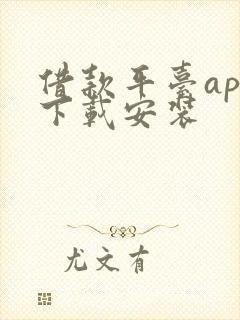 借款平臺ap
下載安裝
尤文有